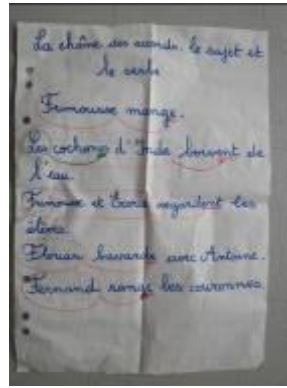 La chaîne des accords. le sujet et
le verbe
Frimousse mange.
Les cochons d'Inde boivent de
l'eau.
Frimousse et regardent les
élèves.
Florian bavarde avec Antoine.
Fernand range les couronnes.